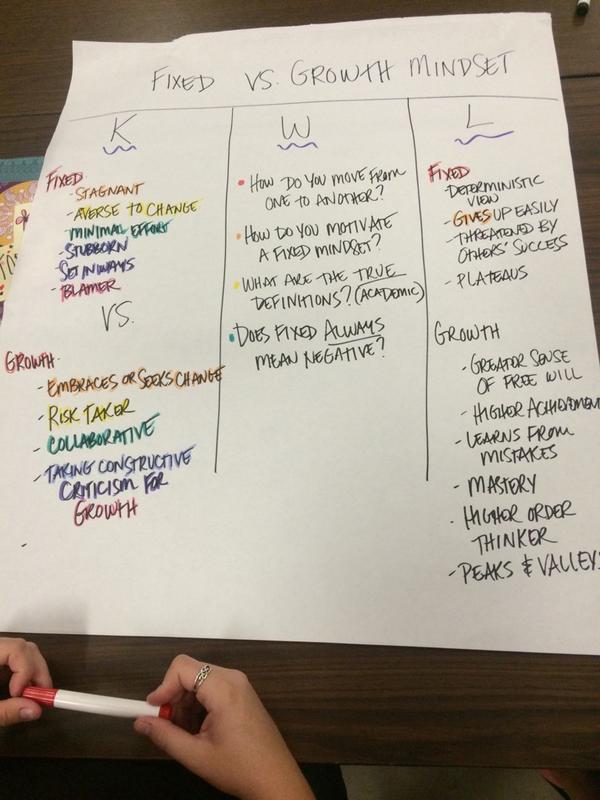 FIXED VS. GROWTH MINDSET
K
FIXED
- STAGNANT
- AVERSE TO CHANGE
- MINIMAL EFFORT
- STUBBORN
- SET IN WAYS
- BLAMER
VS.
GROWTH
- EMBRACES OR SEEKS CHANGE
- RISK TAKER
- COLLABORATIVE
- TAKING CONSTRUCTIVE
CRITICISM FOR
GROWTH
-
W
• HOW DO YOU MOVE FROM
ONE TO ANOTHER?
• HOW DO YOU MOTIVATE
A FIXED MINDSET?
• WHAT ARE THE TRUE
DEFINITIONS? (ACADEMIC)
• DOES FIXED ALWAYS
MEAN NEGATIVE?
L
FIXED
- DETERMINISTIC
VIEW
- GIVES UP EASILY
- THREATENED BY
OTHERS' SUCCESS
- PLATEAUS
GROWTH
- GREATER SENSE
OF FREE WILL
- HIGHER ACHIEVEMENT
- LEARNS FROM
MISTAKES
- MASTERY
- HIGHER ORDER
THINKER
- PEAKS & VALLEYS